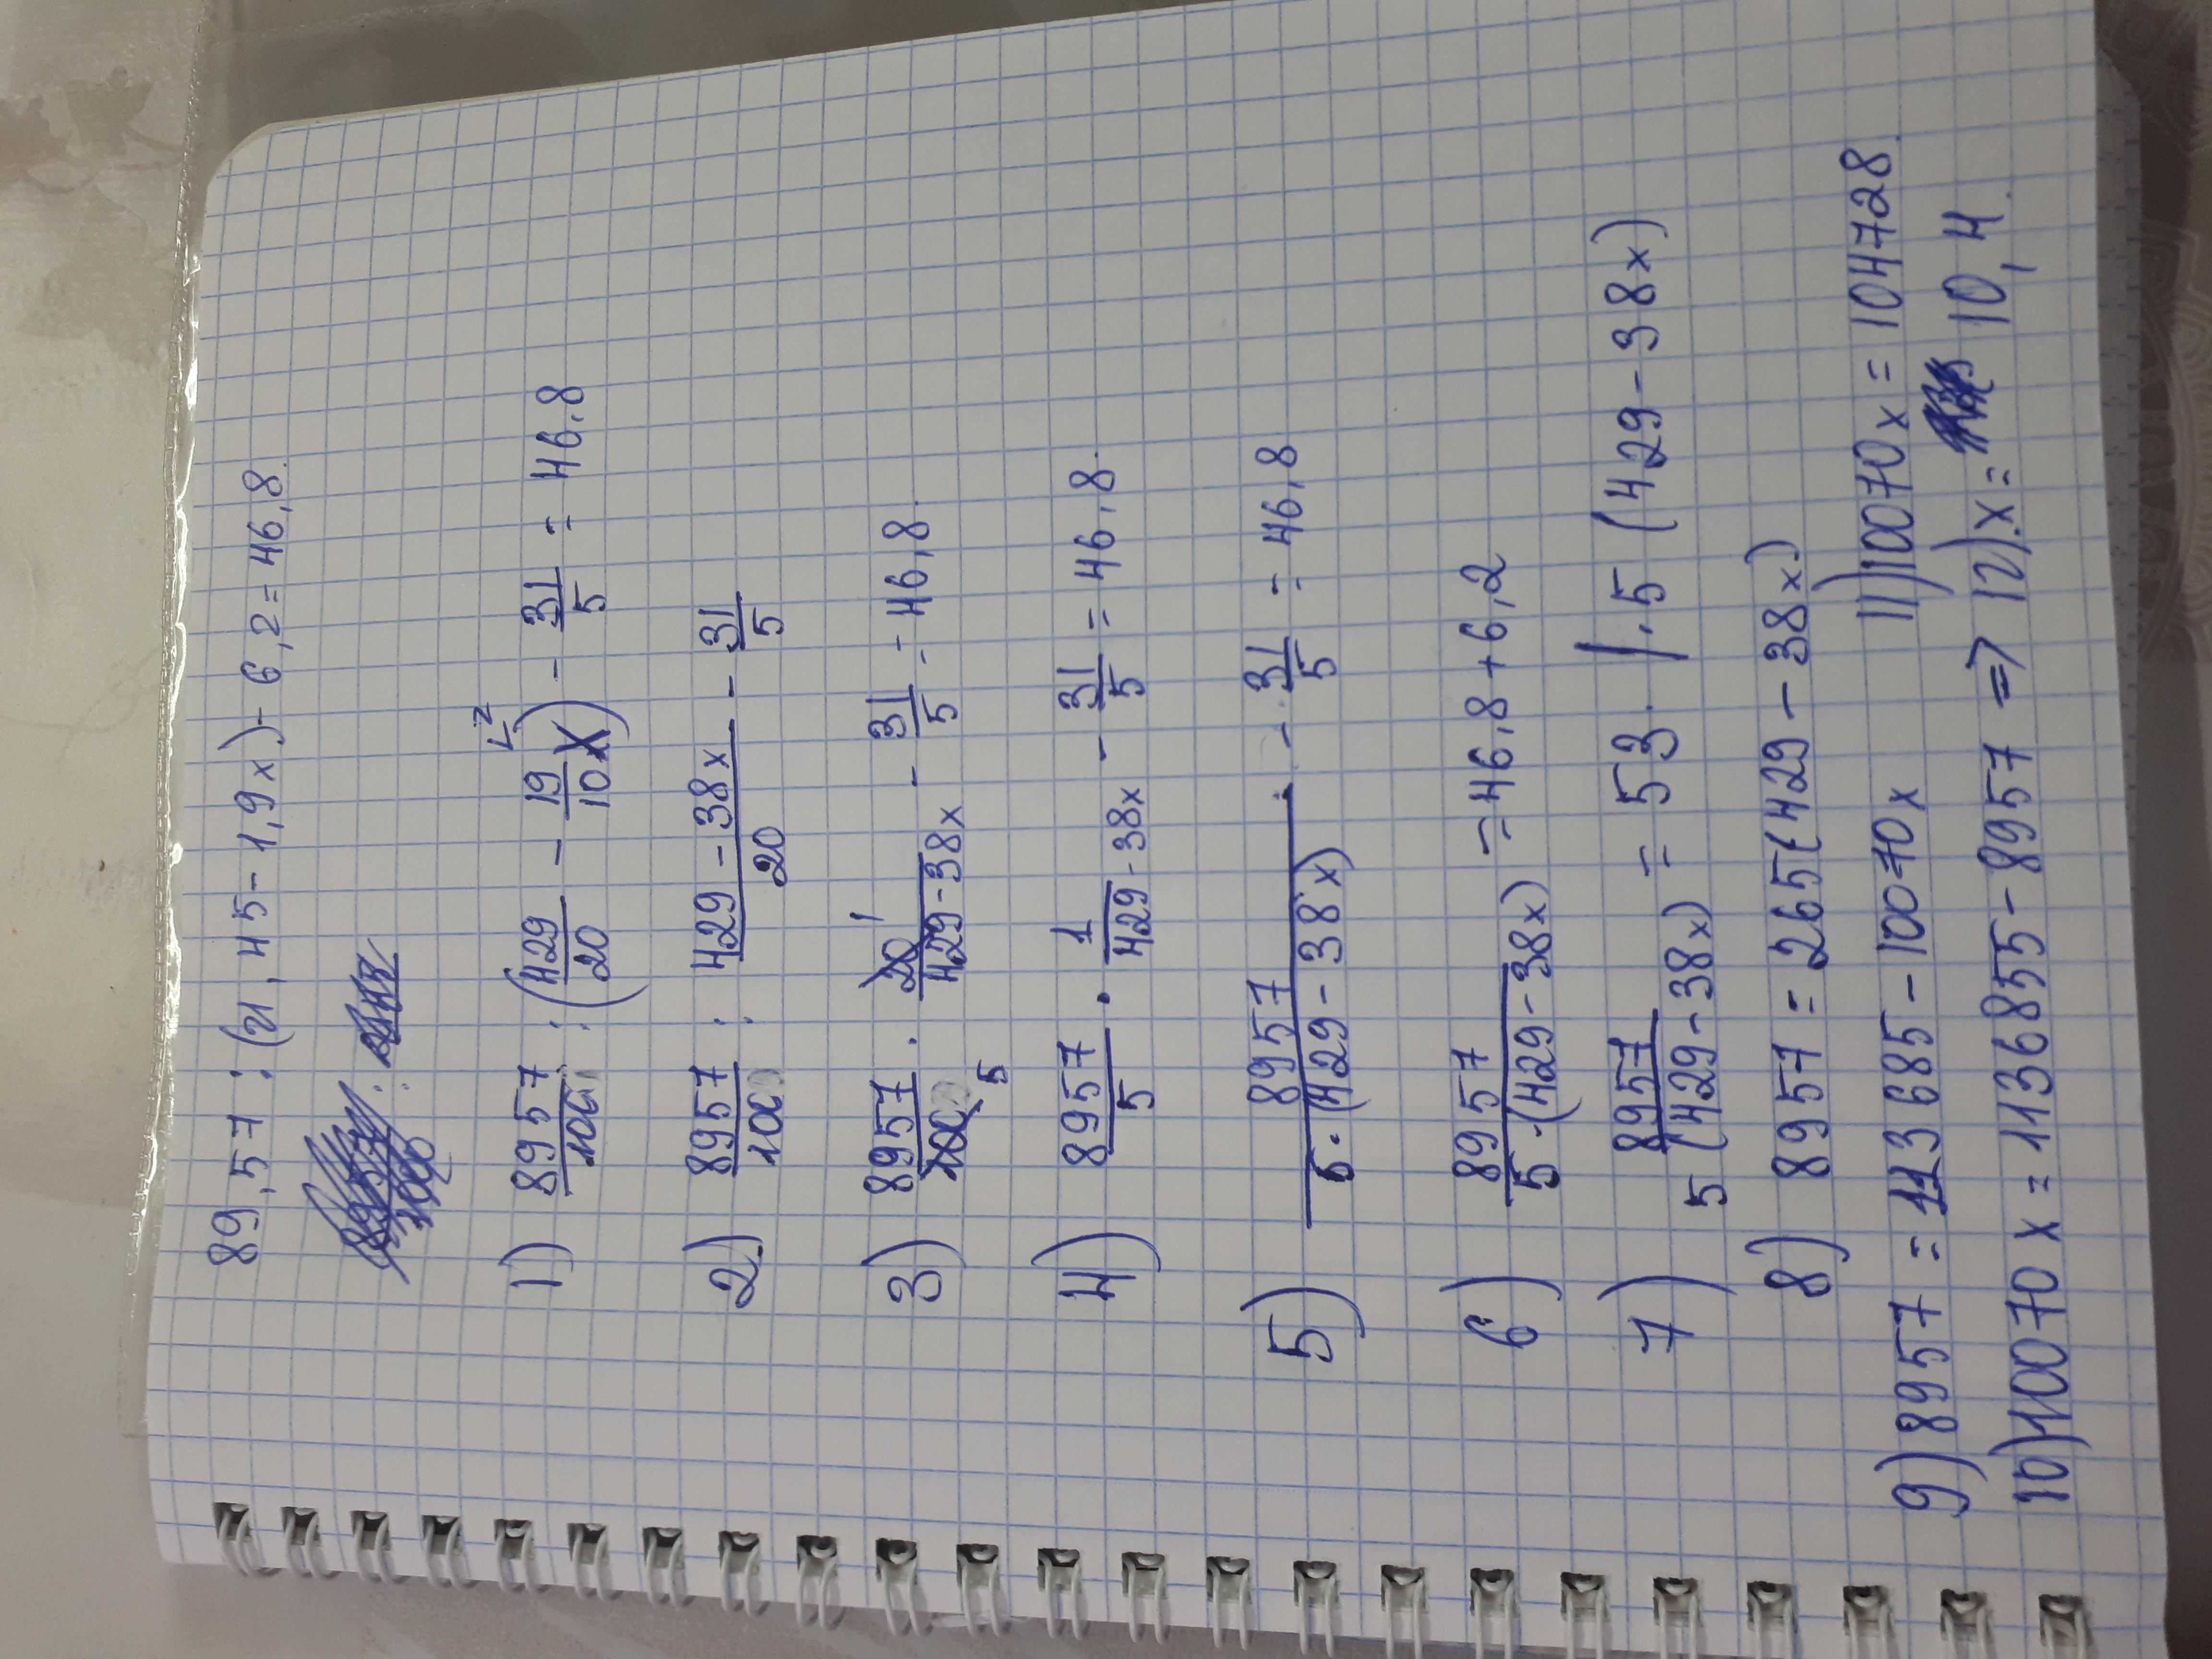 89,57 : (21,45 - 1,9x) - 6,2 = 46,8.
1) 8957/100 : (429/20 - 19/10 x) - 31/5 = 46,8
2) 8957/100 : 429-38x/20 - 31/5
3) 8957/100 5 · 20 1/429-38x - 31/5 = 46,8.
4) 8957/5 · 1/429-38x - 31/5 = 46,8.
5) 8957/5·(429-38x) - 31/5 = 46,8
6) 8957/5·(429-38x) = 46,8 + 6,2
7) 8957/5(429-38x) = 53. |·5 (429-38x)
8) 8957 = 265(429-38x)
9) 8957 = 113685 - 10070x 11) 10070x = 104728.
10) 10070x = 1136855 - 8957 => 12). x = 10,4.